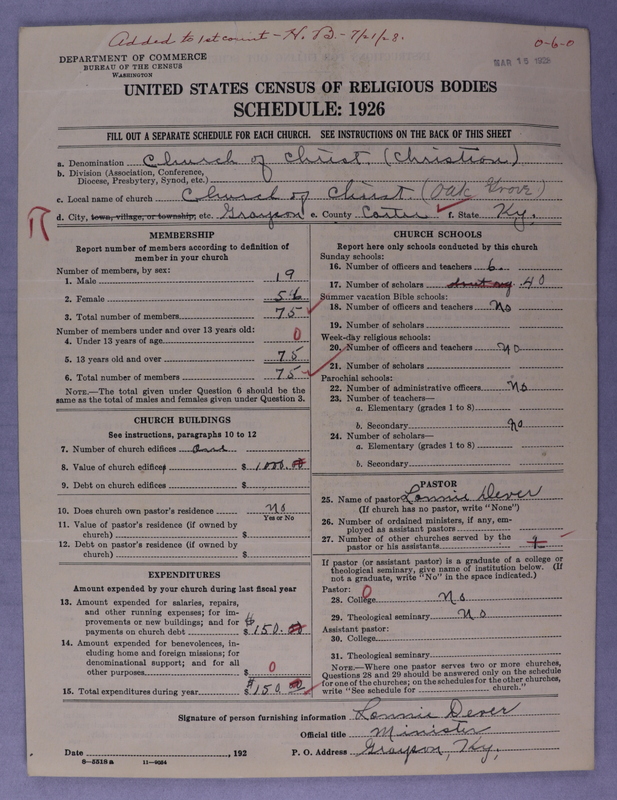 Added to 1st count - H. B. - 7/21/28.
0-6-0
DEPARTMENT OF COMMERCE
BUREAU OF THE CENSUS
WASHINGTON
MAR 15 1928
UNITED STATES CENSUS OF RELIGIOUS BODIES
SCHEDULE: 1926
FILL OUT A SEPARATE SCHEDULE FOR EACH CHURCH. SEE INSTRUCTIONS ON THE BACK OF THIS SHEET
a. Denomination Church of Christ. (Christian)
b. Division (Association, Conference,
Diocese, Presbytery, Synod, etc.)
c. Local name of church Church of Christ. (Oak Grove)
d. City, town, village, or township, etc. Grayson e. County Carter f. State Ky.
MEMBERSHIP
Report number of members according to definition of
member in your church
Number of members, by sex:
1. Male 19
2. Female 56
3. Total number of members 75
Number of members under and over 13 years old:
4. Under 13 years of age 0
5. 13 years old and over 75
6. Total number of members 75
NOTE.—The total given under Question 6 should be the
same as the total of males and females given under Question 3.
CHURCH BUILDINGS
See instructions, paragraphs 10 to 12
7. Number of church edifices one
8. Value of church edifices $ 1000.00
9. Debt on church edifices $
10. Does church own pastor's residence no
Yes or No
11. Value of pastor's residence (if owned by
church) $
12. Debt on pastor's residence (if owned by
church) $
EXPENDITURES
Amount expended by your church during last fiscal year
13. Amount expended for salaries, repairs,
and other running expenses; for im-
provements or new buildings; and for
payments on church debt $ 150.00
14. Amount expended for benevolences, in-
cluding home and foreign missions; for
denominational support; and for all
other purposes $ 0
15. Total expenditures during year $ 150.00
CHURCH SCHOOLS
Report here only schools conducted by this church
Sunday schools:
16. Number of officers and teachers 6.
17. Number of scholars 40
Summer vacation Bible schools:
18. Number of officers and teachers no
19. Number of scholars
Week-day religious schools:
20. Number of officers and teachers no
21. Number of scholars
Parochial schools:
22. Number of administrative officers no
23. Number of teachers—
a. Elementary (grades 1 to 8)
b. Secondary no
24. Number of scholars—
a. Elementary (grades 1 to 8)
b. Secondary
PASTOR
25. Name of pastor Lonnie Dever
(If church has no pastor, write "None")
26. Number of ordained ministers, if any, em-
ployed as assistant pastors
27. Number of other churches served by the
pastor or his assistants
If pastor (or assistant pastor) is a graduate of a college or
theological seminary, give name of institution below. (If
not a graduate, write "No" in the space indicated.)
Pastor: 0
28. College no
29. Theological seminary no
Assistant pastor:
30. College
31. Theological seminary
NOTE.—Where one pastor serves two or more churches,
Questions 28 and 29 should be answered only on the schedule
for one of the churches; on the schedules for the other churches,
write "See schedule for church."
Signature of person furnishing information Lonnie Dever
Official title Minister
Date , 192 P. O. Address Grayson, Ky.
8—5518 a 11—9054